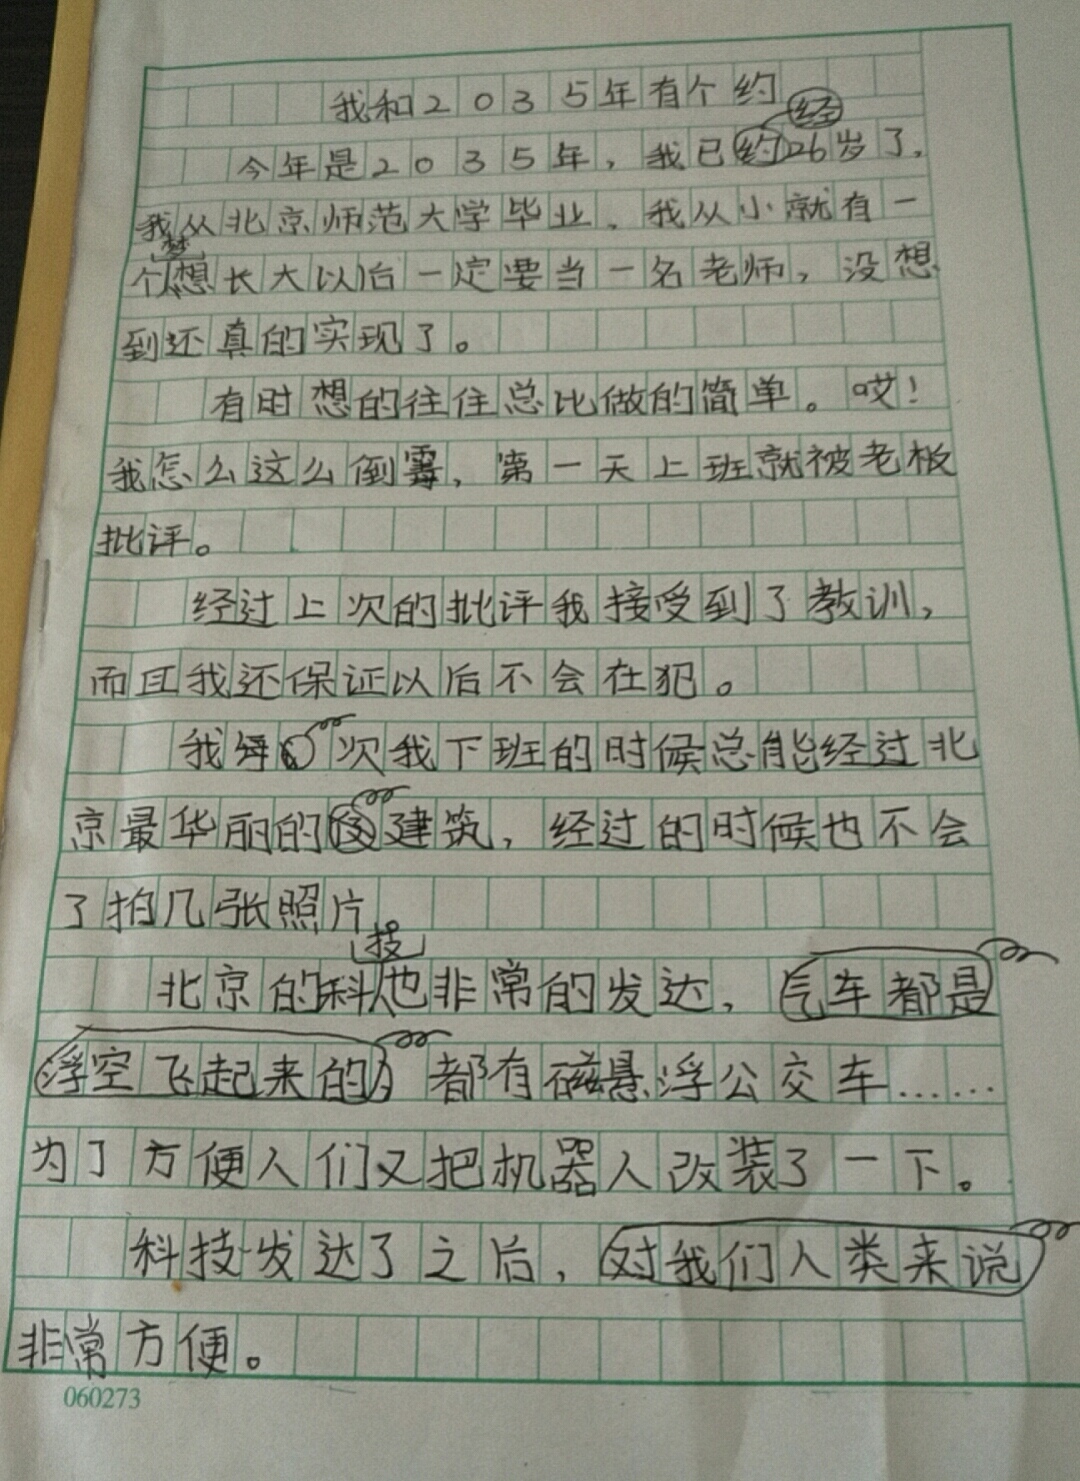 我和2035年有个约
经
今年是2035年，我已约26岁了，
我从北京师范大学毕业，我从小就有一
梦
个想长大以后一定要当一名老师，没想
到还真的实现了。
有时想的往往总比做的简单。哎！
我怎么这么倒霉，第一天上班就被老板
批评。
经过上次的批评我接受到了教训，
而且我还保证以后不会在犯。
我每次我下班的时候总能经过北
京最华丽的建筑，经过的时候也不会
了拍几张照片
技
北京的科也非常的发达，汽车都是
浮空飞起来的都有磁悬浮公交车……
为了方便人们又把机器人改装了一下。
科技发达了之后，对我们人类来说
非常方便。
060273